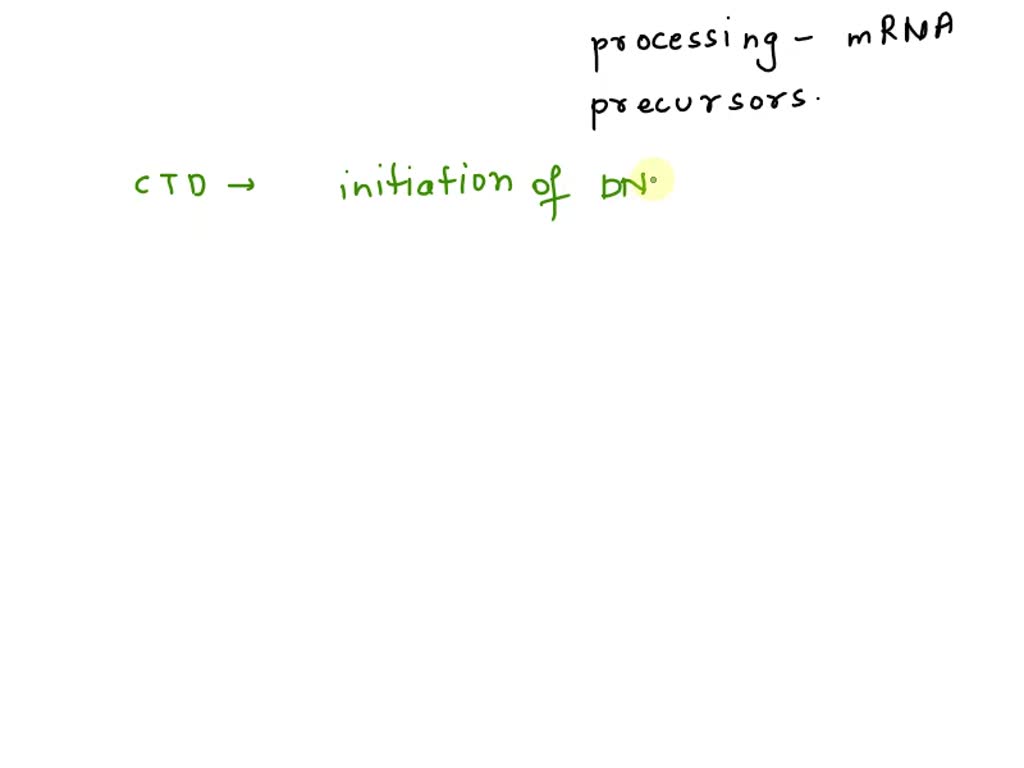 processing - mRNA
precursors.
CTD → initiation of DN